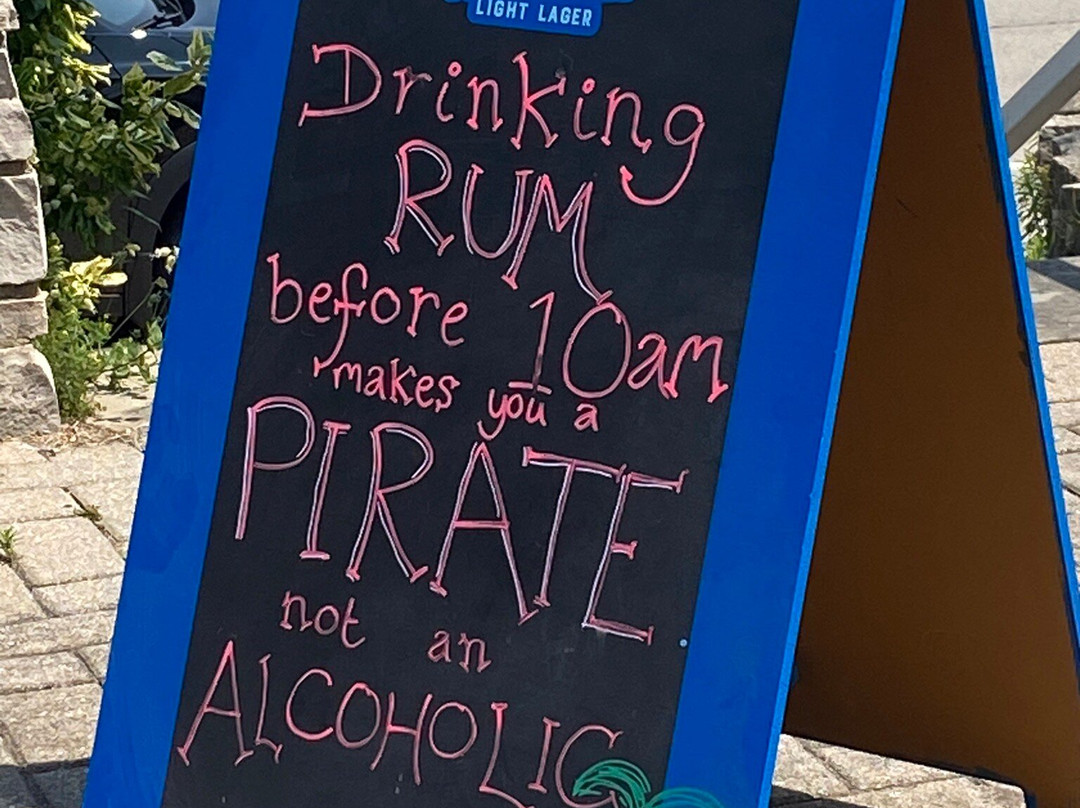 LIGHT LAGER
Drinking
RUM
before 10am
makes you a
PIRATE
not an
ALCOHOLIC